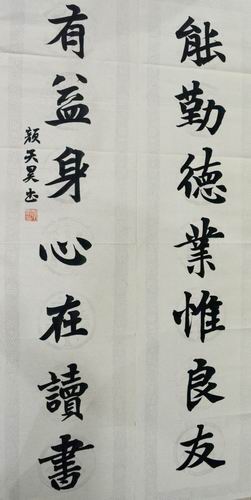 能勤德業惟良友
有益身心在讀書
顏天昊書